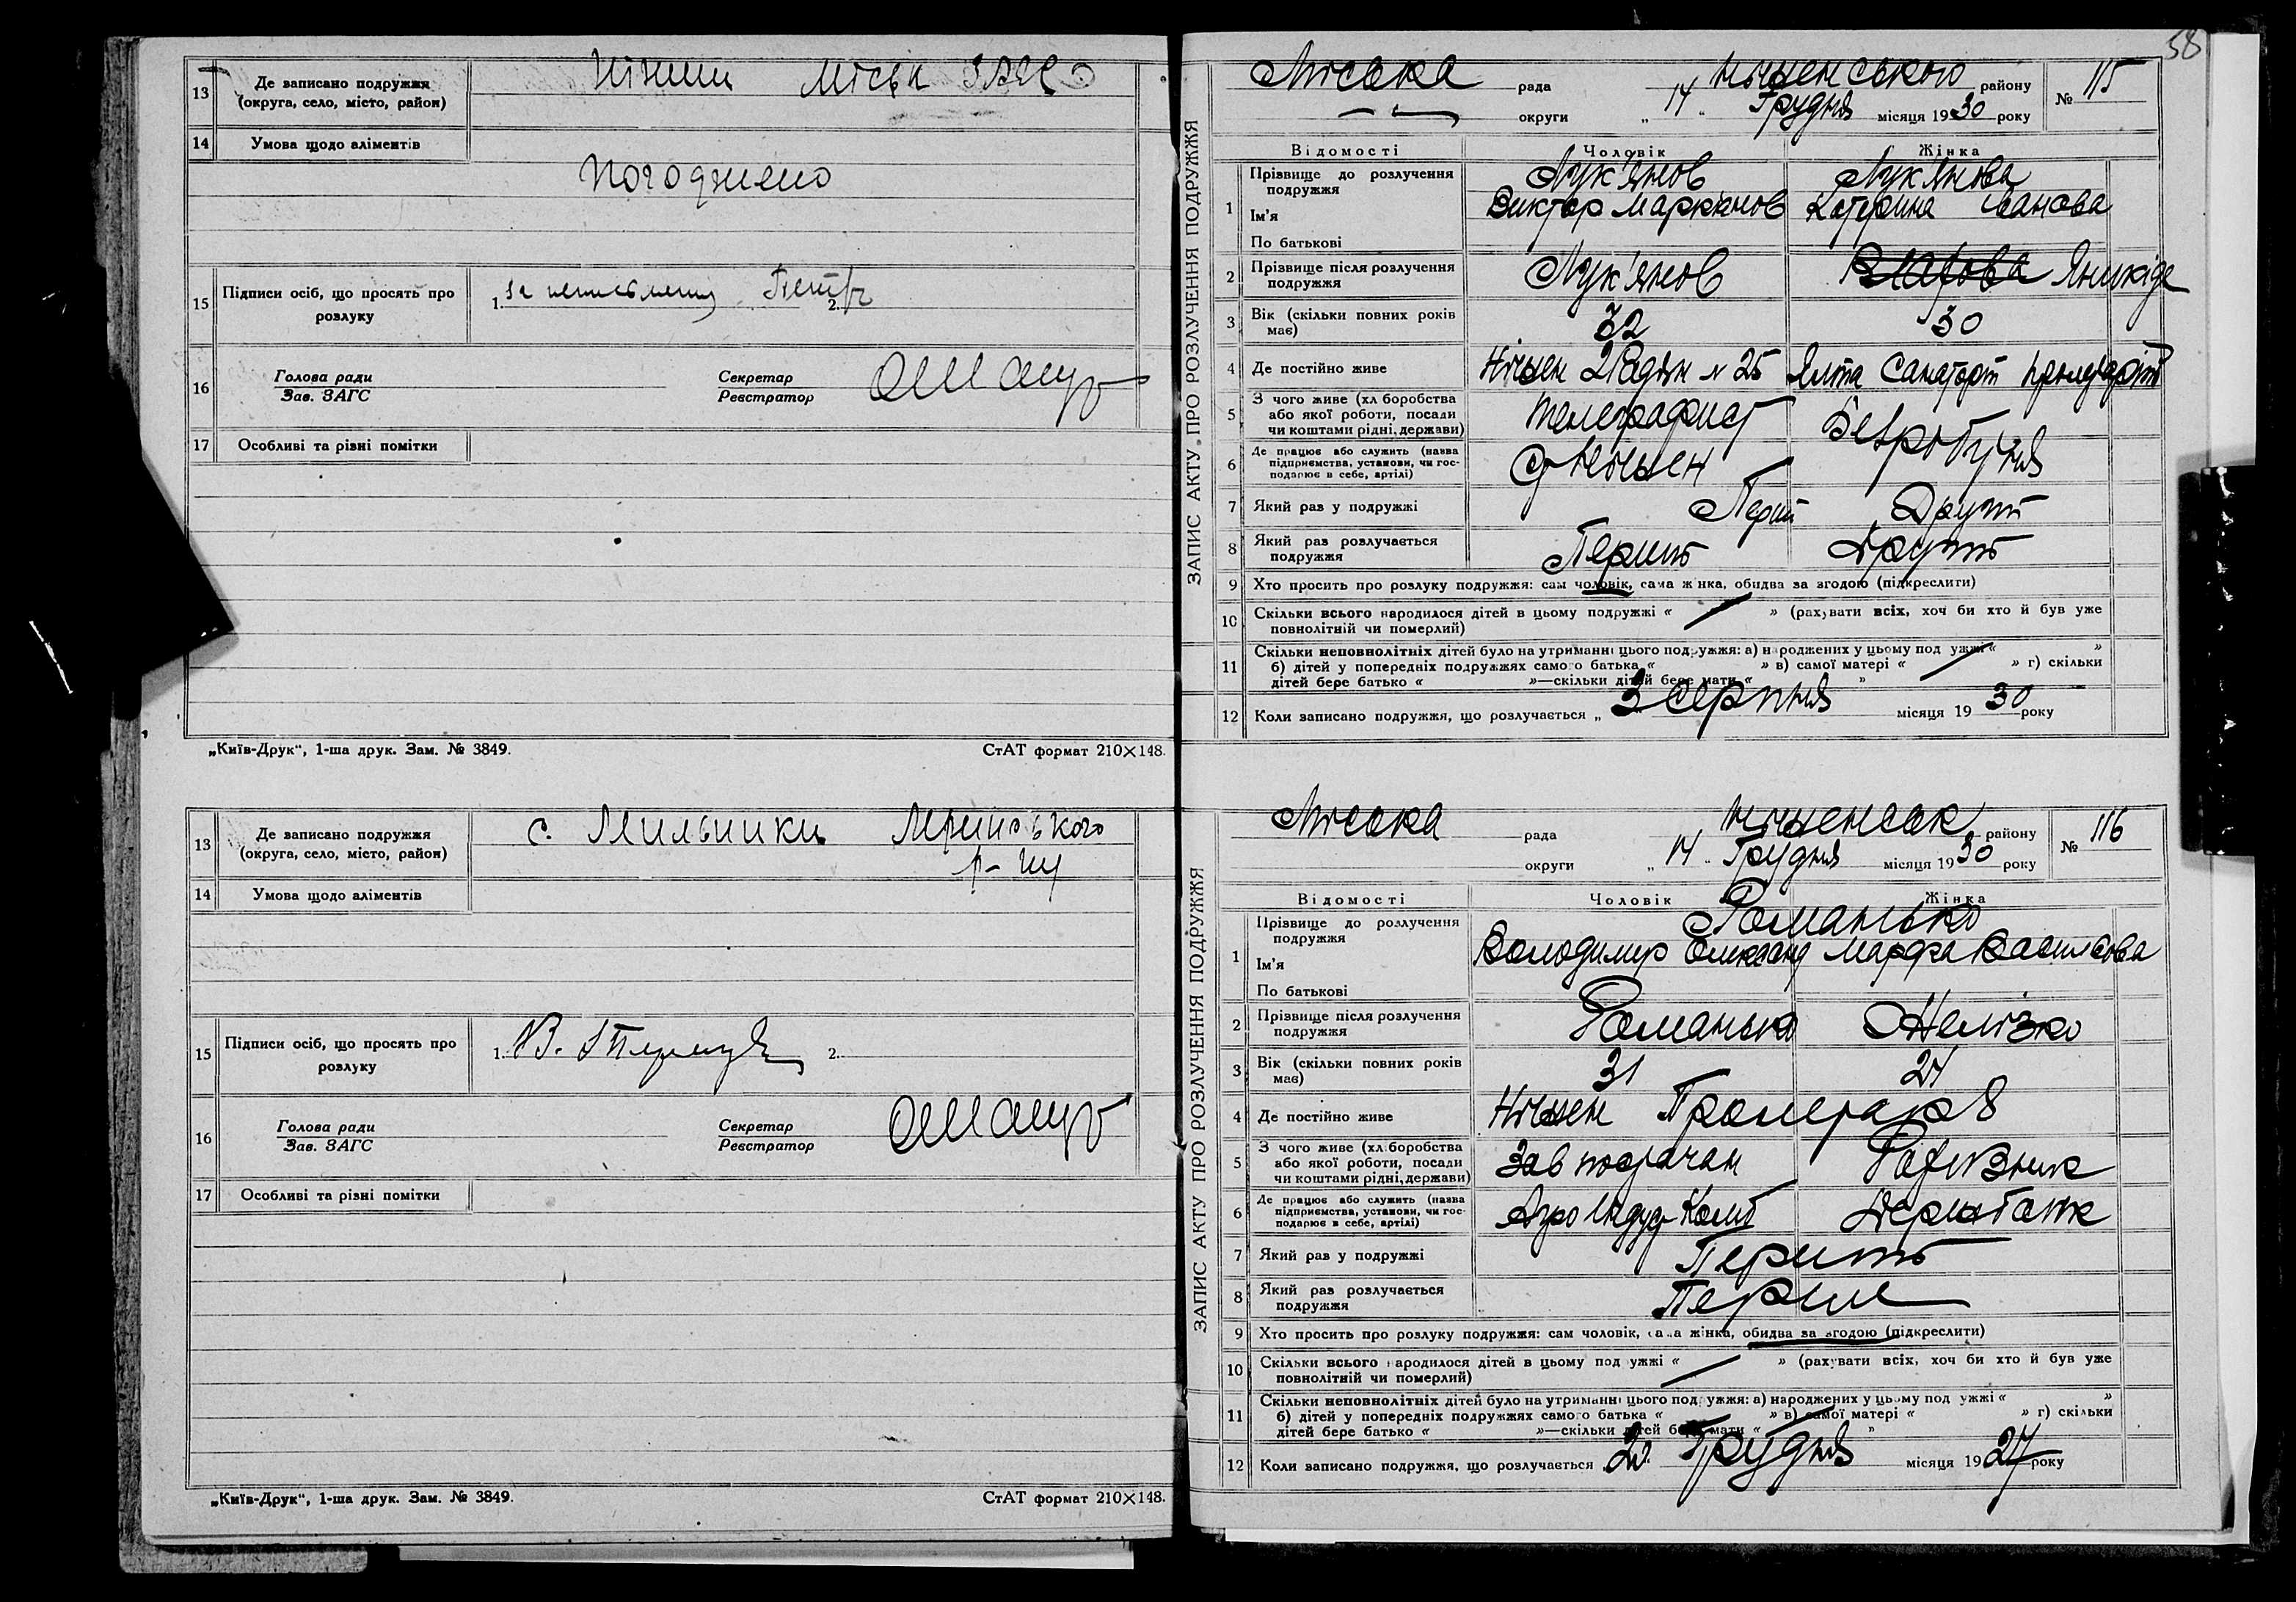 13 Де записано подружжя
(округа, село, місто, район)
Ніжин міськ ЗАГС
14 Умова щодо аліментів
Погоджено
15 Підписи осіб, що просять про
розлуку
1. 2.
16 Голова ради
Зав. ЗАГС
Секретар
Реєстратор
17 Особливі та різні помітки
„Київ-Друк“, 1-ша друк. Зам. № 3849.
СтАТ формат 210×148.
13 Де записано подружжя
(округа, село, місто, район)
с. Мильники
р-ну
14 Умова щодо аліментів
15 Підписи осіб, що просять про
розлуку
1. В. 2.
16 Голова ради
Зав. ЗАГС
Секретар
Реєстратор
17 Особливі та різні помітки
„Київ-Друк“, 1-ша друк. Зам. № 3849.
СтАТ формат 210×148.
58
ЗАПИС АКТУ ПРО РОЗЛУЧЕННЯ ПОДРУЖЖЯ
Міська рада Ніженського району
округи „ 14 “ Грудня місяця 1930 року
№ 115
Відомості Чоловік Жінка
1 Прізвище до розлучення
подружжя
Лук'янов Лук'янова
Ім'я
Виктор Маркіянов Катерина Іванова
По батькові
2 Прізвище після розлучення
подружжя
Лук'янов
3 Вік (скільки повних років
має)
32 30
4 Де постійно живе
Ніжен № 25 Ялта Санаторт
5 З чого живе (хліборобства
або якої роботи, посади
чи коштами рідні, держави)
телеграфист Безробітня
6 Де працює або служить (назва
підприємства, установи, чи гос-
подарює в себе, артілі)
Ст Ніжен
7 Який раз у подружжі
Перш Другит
8 Який раз розлучається
подружжя
Першт Другит
9 Хто просить про розлуку подружжя: сам чоловік, сама жінка, обидва за згодою (підкреслити)
10 Скільки всього народилося дітей в цьому подружжі « » (рахувати всіх, хоч би хто й був уже
повнолітній чи померлий)
11 Скільки неповнолітніх дітей було на утриманні цього подружжя: а) народжених у цьому подружжі « »
б) дітей у попередніх подружжях самого батька « » в) самої матері « » г) скільки
дітей бере батько « »—скільки дітей бере мати « »
12 Коли записано подружжя, що розлучається „ 3 серпня місяця 1930 року
ЗАПИС АКТУ ПРО РОЗЛУЧЕННЯ ПОДРУЖЖЯ
Міська рада Ніженськ району
округи „ 14 “ Грудня місяця 1930 року
№ 116
Відомості Чоловік Жінка
1 Прізвище до розлучення
подружжя
Романько
Ім'я
Володимир Олександ Марфа Василєова
По батькові
2 Прізвище після розлучення
подружжя
Романько
3 Вік (скільки повних років
має)
31 27
4 Де постійно живе
Ніжен Пролетар 8
5 З чого живе (хліборобства
або якої роботи, посади
чи коштами рідні, держави)
6 Де працює або служить (назва
підприємства, установи, чи гос-
подарює в себе, артілі)
Держбанк
7 Який раз у подружжі
Першт
8 Який раз розлучається
подружжя
Перше
9 Хто просить про розлуку подружжя: сам чоловік, сама жінка, обидва за згодою (підкреслити)
10 Скільки всього народилося дітей в цьому подружжі « » (рахувати всіх, хоч би хто й був уже
повнолітній чи померлий)
11 Скільки неповнолітніх дітей було на утриманні цього подружжя: а) народжених у цьому подружжі « »
б) дітей у попередніх подружжях самого батька « » в) самої матері « » г) скільки
дітей бере батько « »—скільки дітей бере мати « »
12 Коли записано подружжя, що розлучається Грудня місяця 1927 року